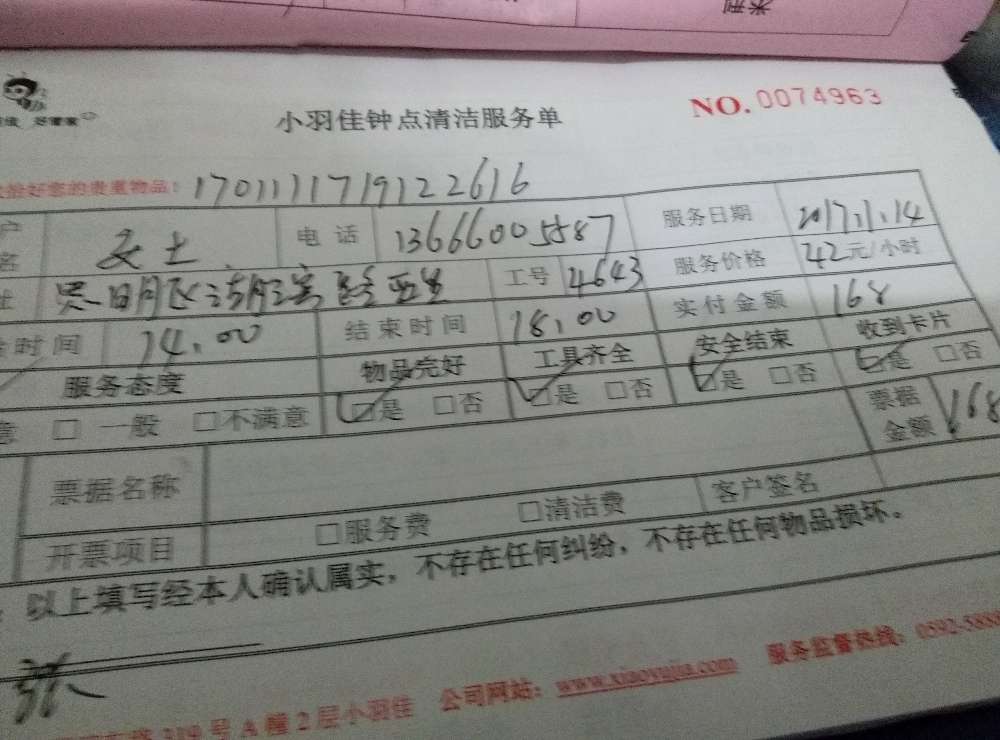 米型
好管家
小羽佳钟点清洁服务单
NO.0074963
好您的贵重物品：1701111719122616
户名 女士 电话 13666005587 服务日期 2017.1.14
址 工号 4643 服务价格 42元/小时
时间 14.00 结束时间 18.00 实付金额 168
服务态度 物品完好 工具齐全 安全结束 收到卡片
意 □ 一般 □不满意 ☑是 □否 ☑是 □否 ☑是 □否 ☑是 □否
票据名称 票据金额 168
开票项目 □服务费 □清洁费 客户签名
以上填写经本人确认属实，不存在任何纠纷，不存在任何物品损坏。
319号A幢2层小羽佳 公司网站：www.xiaoyujia.com 服务监督热线：0592-5888